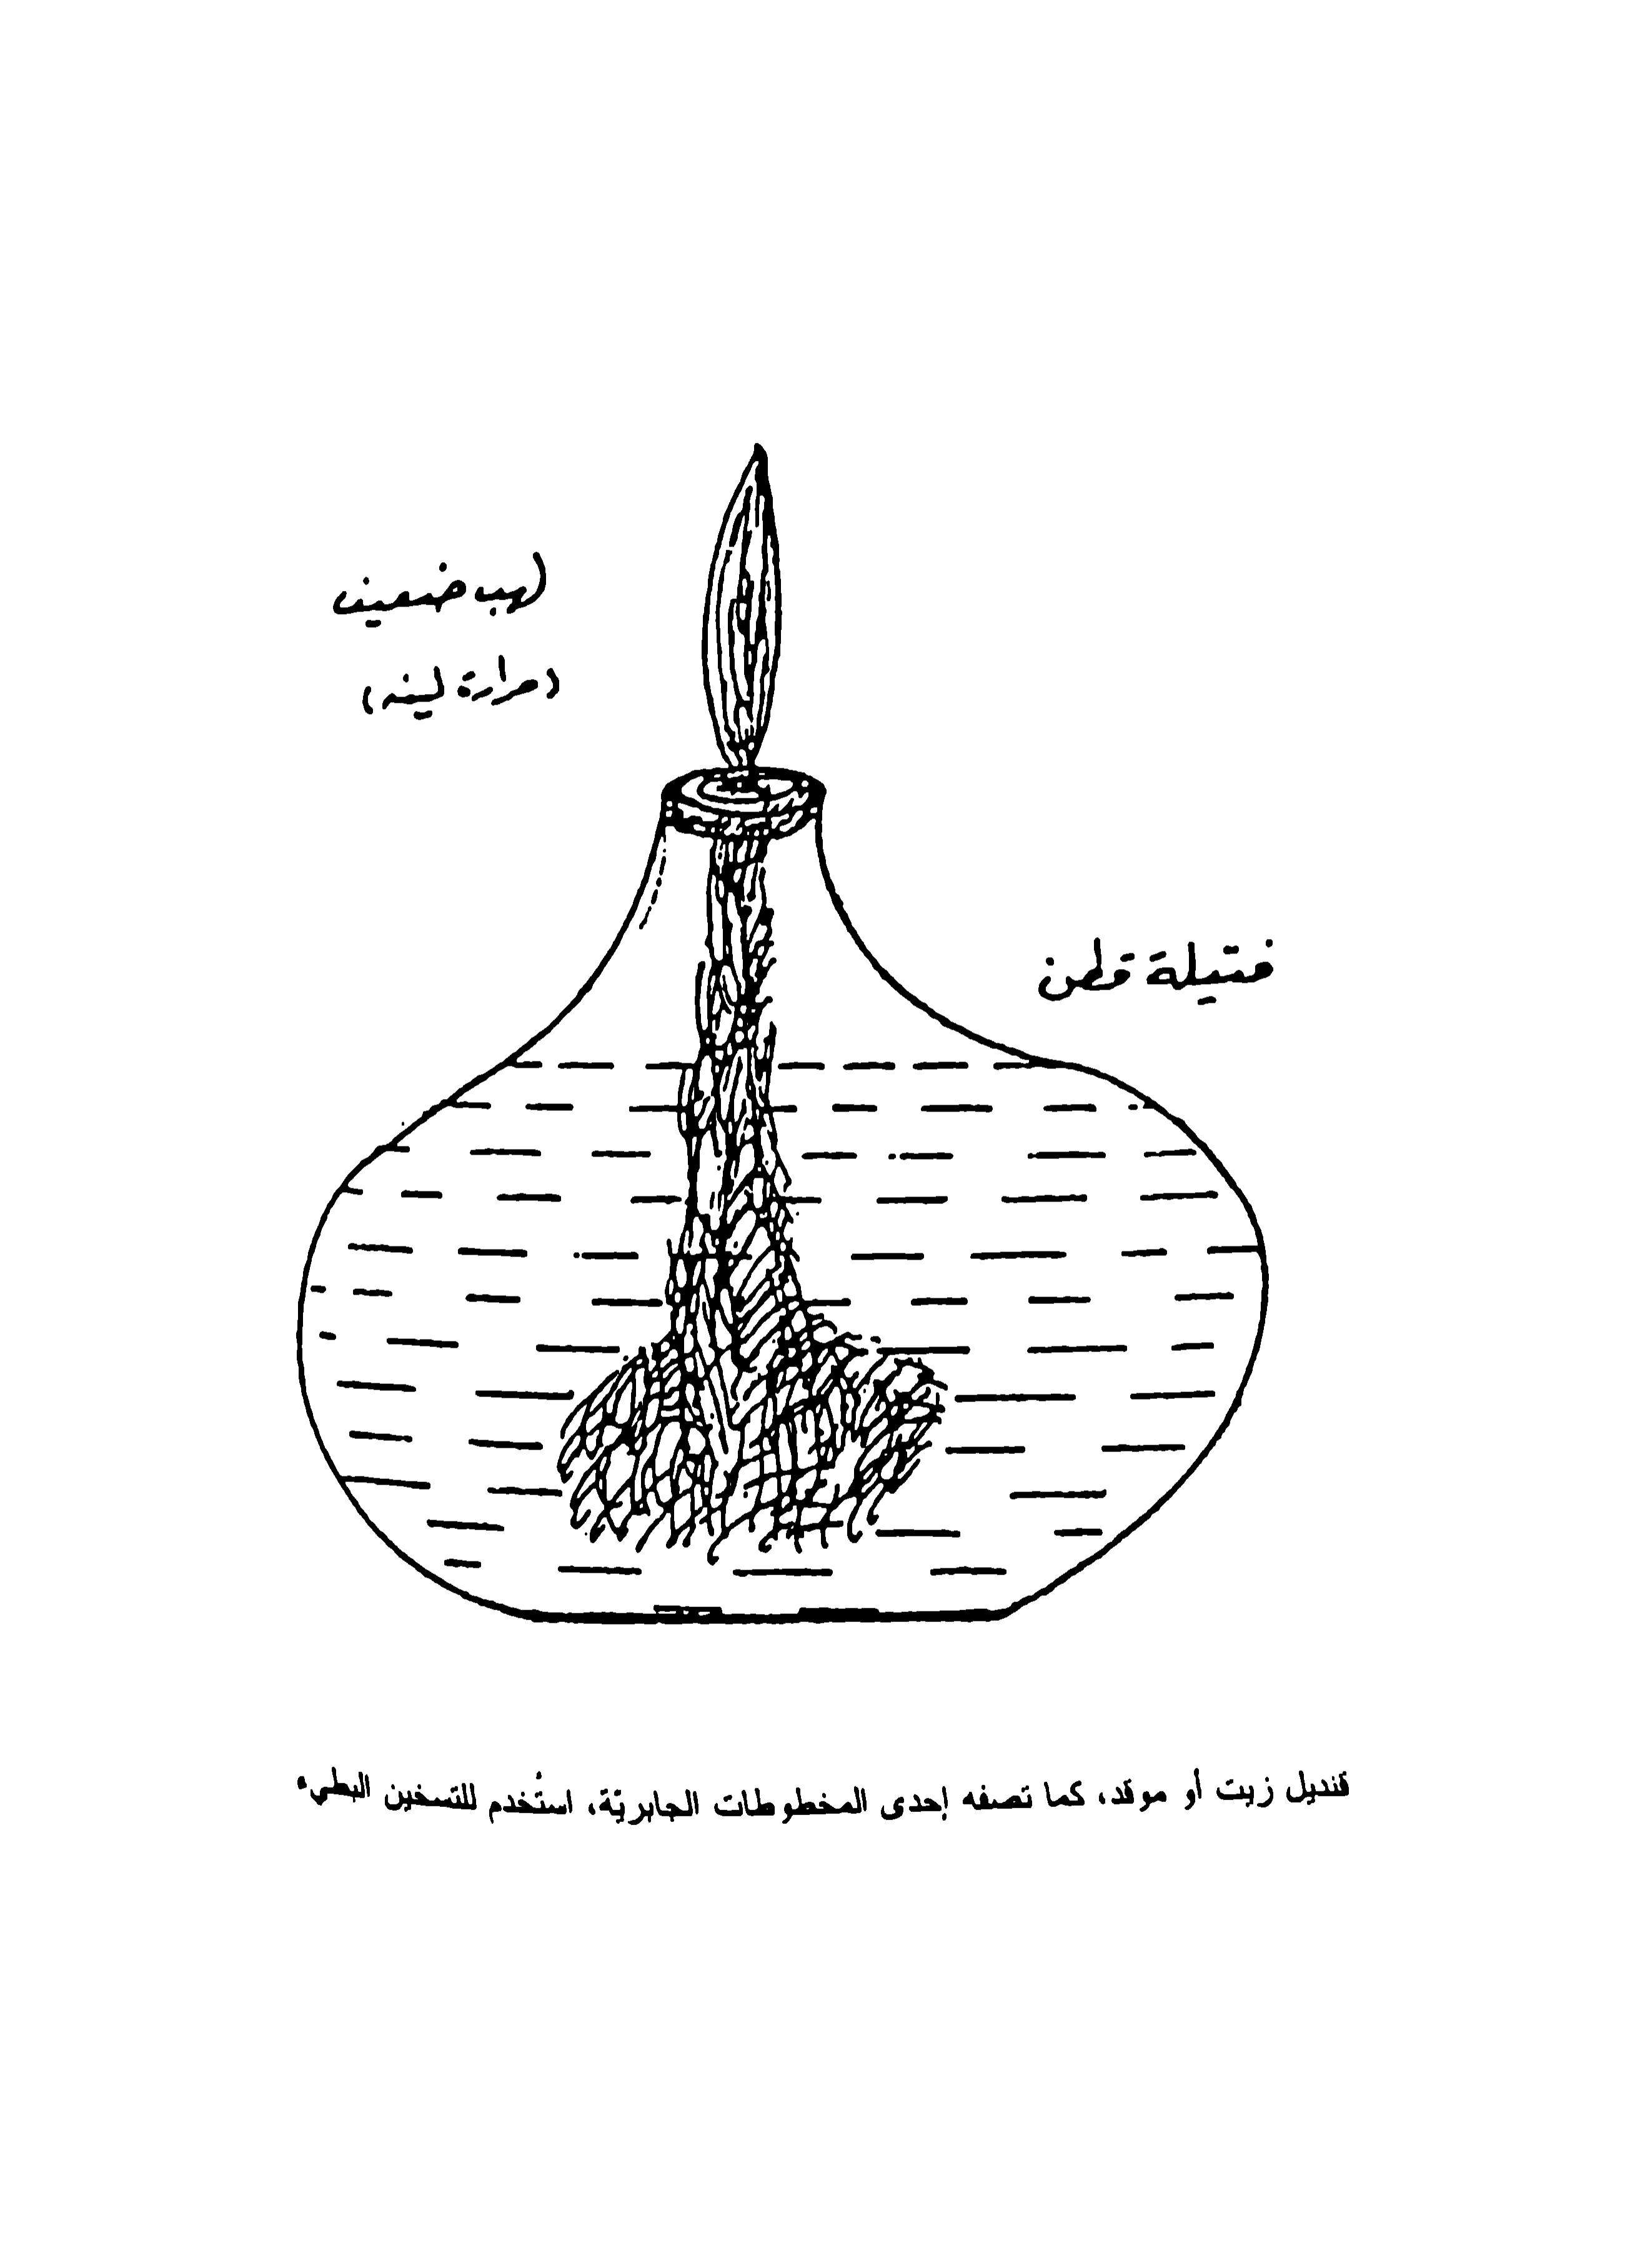 لهب ضعيف
(حرارة لينه)
فتيلة قطن
قنديل زيت أو موقد، كما تصفه إحدى المخطوطات الجابريّة، استُخدم للتسخين البطيء